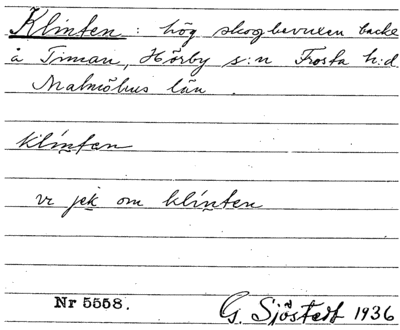 Klinten : hög skogbevuxen backe
å Timan, Hörby s:n Frosta h:d.
Malmöhus län.
klínten
vi jek om klínten
Nr 5558.
G. Sjöstedt 1936